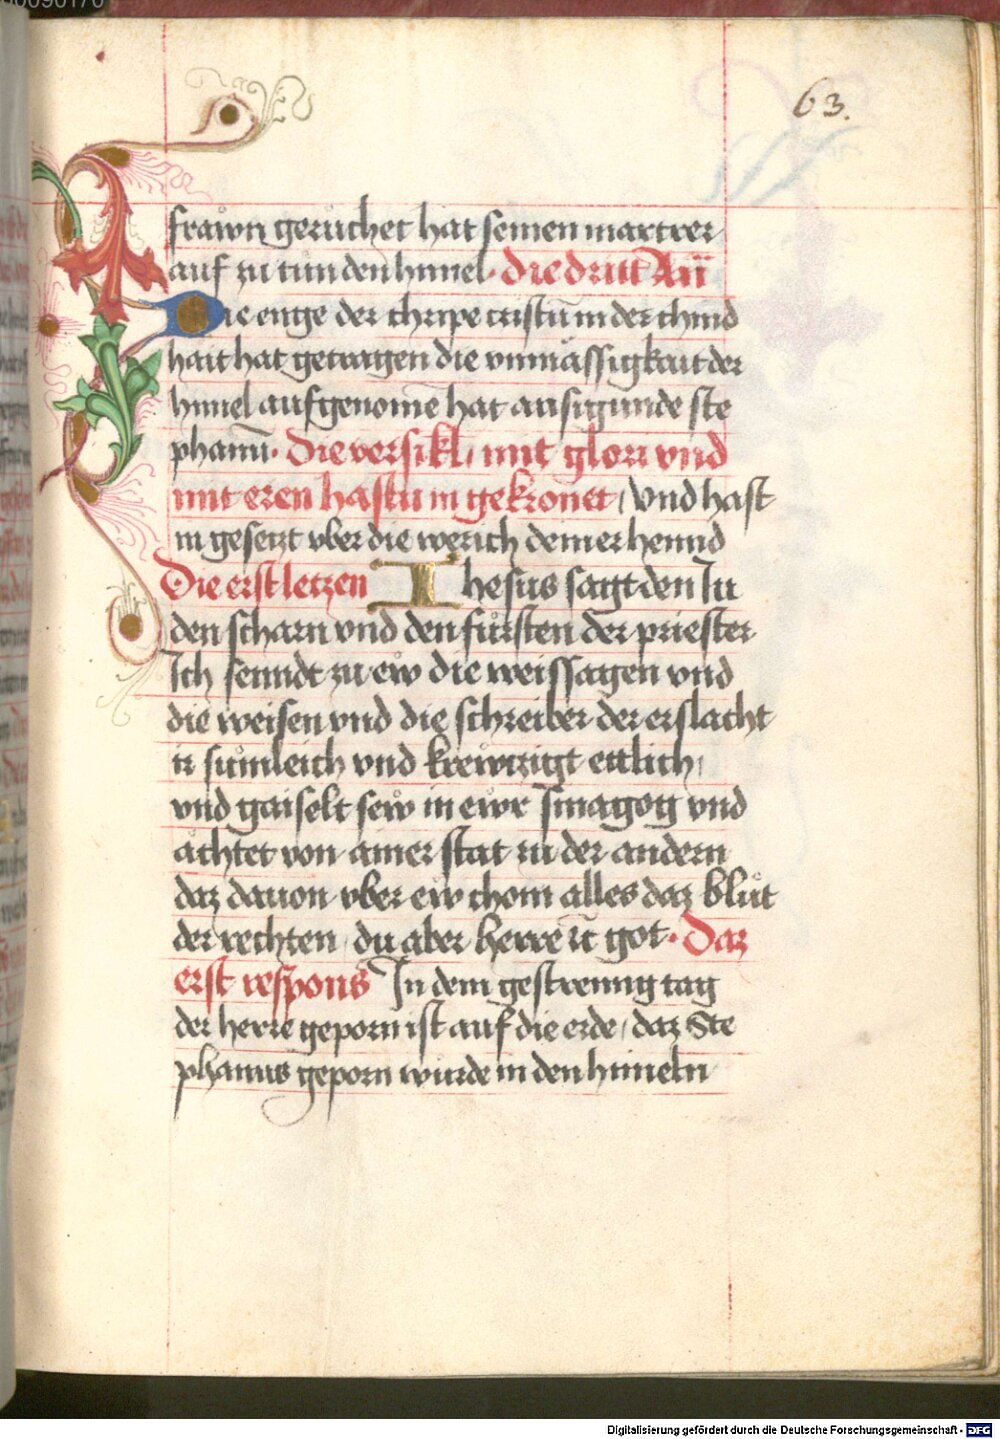 63.
frawn geruchet hat seinen martrer
auf zu tun den himel. Die dritt Añ
Die enge der chripe cristū in der chind
hait hat getragen die vnmässigkait der
himel aufgenomē hat an sigunde ste
phanū. Die versikl, mit glori vnd
mit eren hastu in gekronet, vnd hast
in gesetzt vber die werich deiner hennd
Die erst letzen Ihesus sagt den Ju
den scharn vnd den fürsten der priester
Ich senndt zu ew die weissagen vnd
die weisen vnd die schreiber der erslacht
ir sümleich vnd krewtzigt ettlich,
vnd gaiselt sew in ewr sinagog vnd
ächtet von ainer stat zu der andern
daz dauon vber ew chom alles daz blůt
der rechten, du aber herre rc got. Daz
erst respons In dem gestrenng tag
der herre geporn ist auf die erde, daz Ste
phanus geporn wurde in den himeln
Digitalisierung gefördert durch die Deutsche Forschungsgemeinschaft - DFG